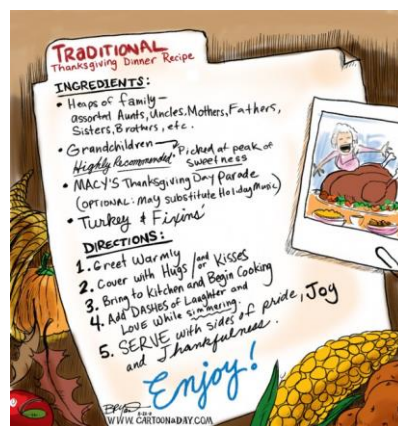 TRADITIONAL
Thanksgiving Dinner Recipe
INGREDIENTS:
• Heaps of family—
assorted Aunts, Uncles, Mothers, Fathers,
Sisters, Brothers, etc.
• Grandchildren → *Picked at peak of
Highly Recommended* sweetness
• MACY'S Thanksgiving Day Parade
(OPTIONAL: may substitute Holiday Music)
• Turkey & Fixins
DIRECTIONS:
1. Greet Warmly
2. Cover with Hugs and/or Kisses
3. Bring to Kitchen and Begin Cooking
4. Add DASHes of Laughter and
LOVE while simmering.
5. SERVE with sides of pride, Joy
and Thankfulness.
Enjoy!
WWW.CARTOONADAY.COM